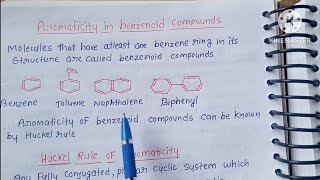 Aromaticity in benzenoid compounds
Molecules that have atleast one benzene ring in its
structure are called benzenoid compounds.
CH3
Benzene Toluene Naphthalene Biphenyl
Aromaticity of benzenoid compounds can be known
by Huckel rule
Huckel Rule of Aromaticity
Any fully conjugated, planar cyclic system which
Made with
KINEMASTER